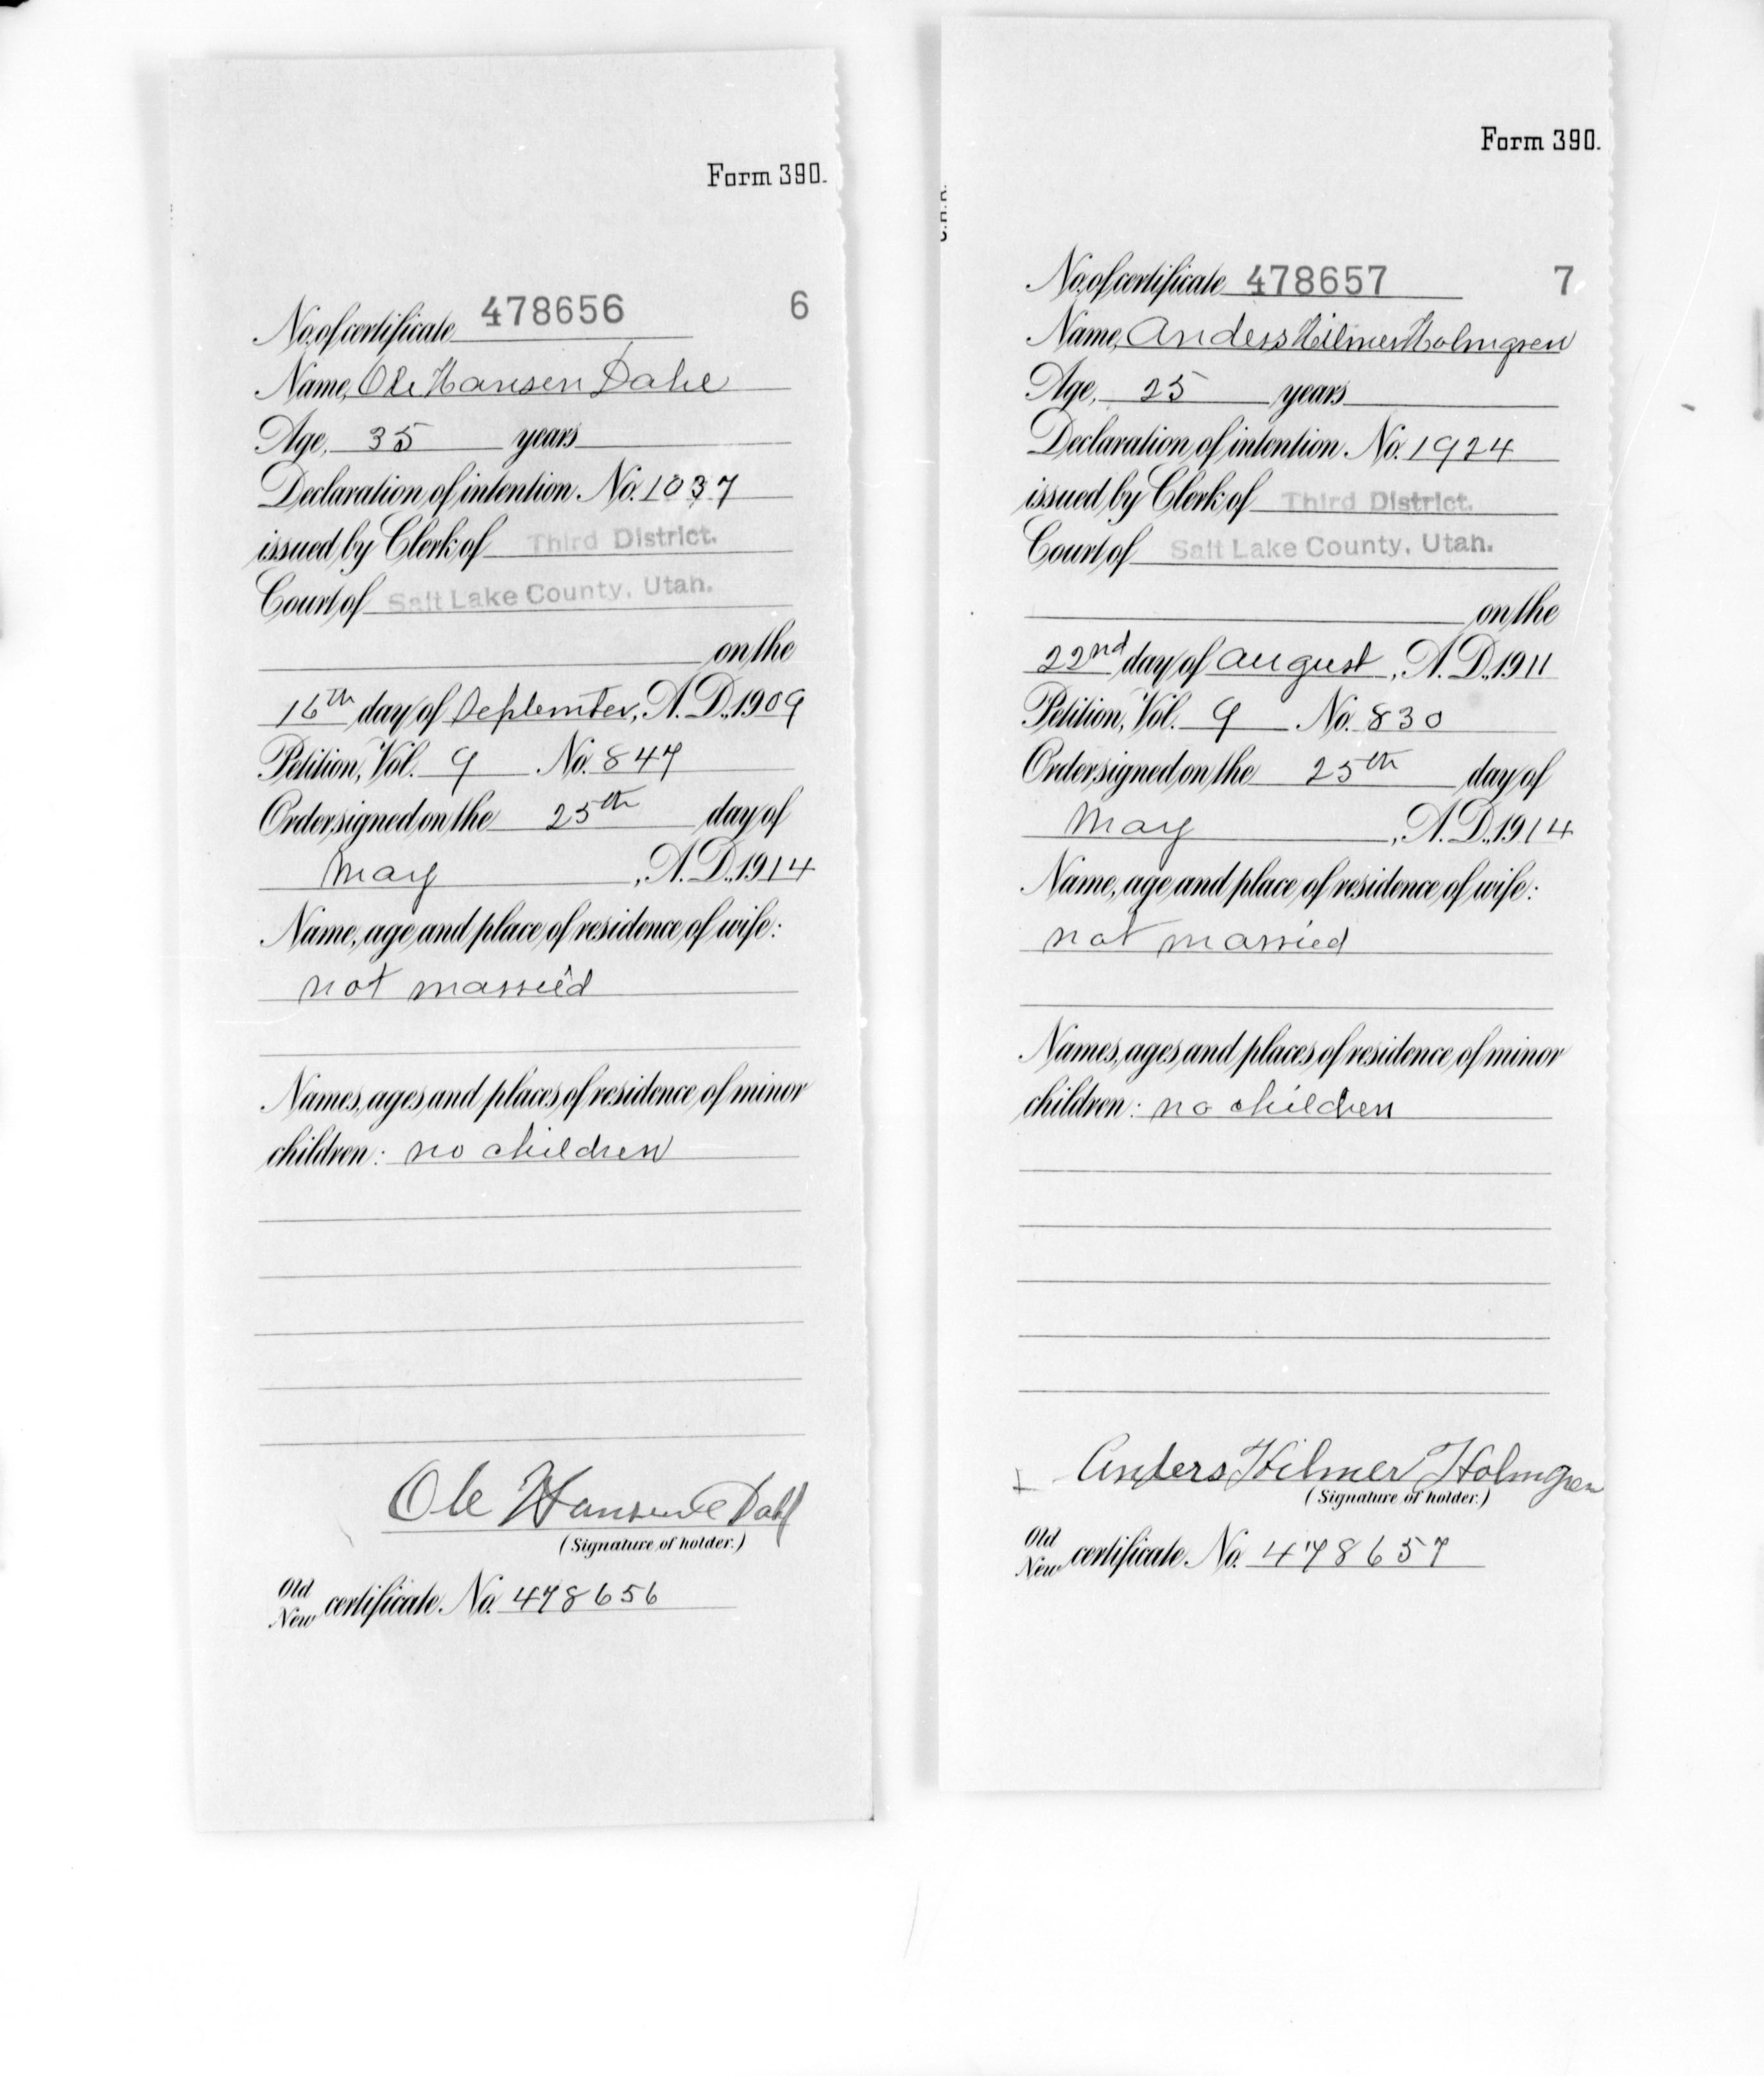 Form 390.
No. of certificate 478656 6
Name, Ole Hansen Dahl
Age, 35 years
Declaration of intention. No. 1037
issued by Clerk of Third District.
Court of Salt Lake County, Utah.
on the
16th day of September, A.D., 1909
Petition, Vol. 9 No. 847
Order signed on the 25th day of
May, A.D., 1914
Name, age and place of residence of wife:
not married
Names, ages and places of residence of minor
children: no children
Ole Hansen Dahl
(Signature of holder.)
Old
New certificate No. 478656
Form 390.
No. of certificate 478657 7
Name, Anders Hilmer Holmgren
Age, 25 years
Declaration of intention. No. 1924
issued by Clerk of Third District.
Court of Salt Lake County, Utah.
on the
22nd day of August, A.D., 1911
Petition, Vol. 9 No. 830
Order signed on the 25th day of
May, A.D., 1914
Name, age and place of residence of wife:
not married
Names, ages and places of residence of minor
children: no children
Anders Hilmer Holmgren
(Signature of holder.)
Old
New certificate No. 478657